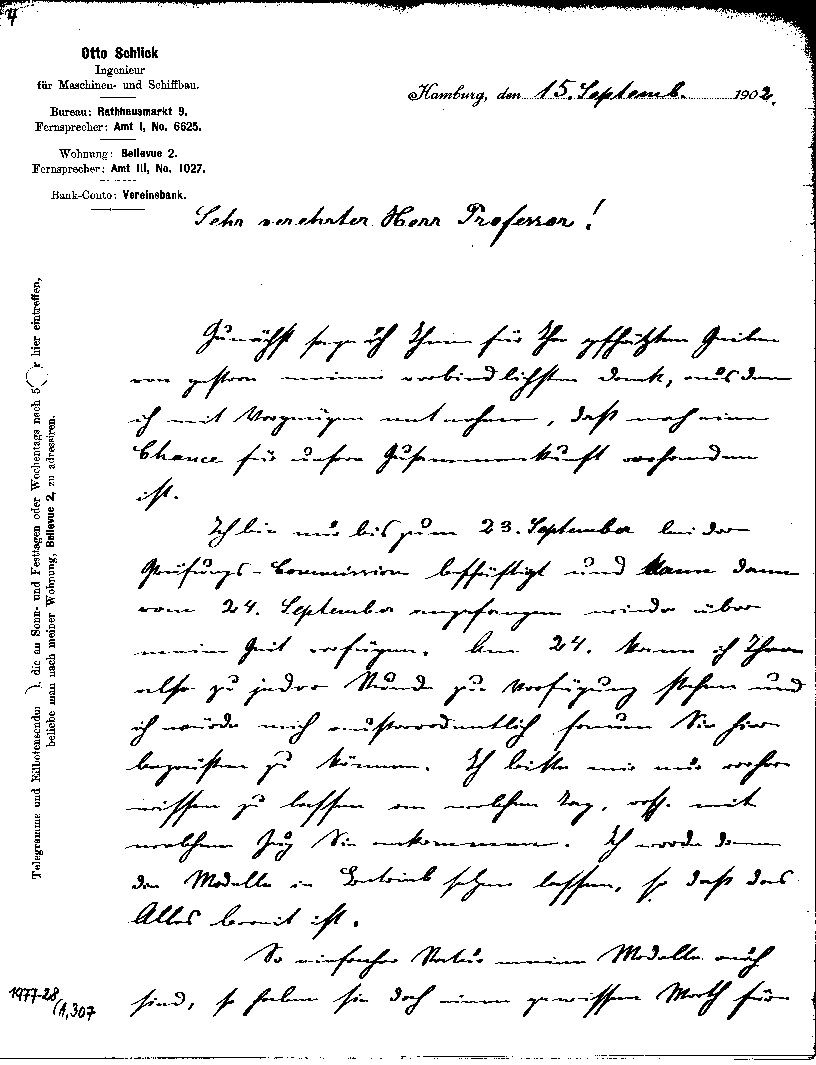 4
Otto Schlick
Ingenieur
für Maschinen- und Schiffbau.
Bureau: Rathhausmarkt 9.
Fernsprecher: Amt I, No. 6625.
Wohnung: Bellevue 2.
Fernsprecher: Amt III, No. 1027.
Bank-Conto: Vereinsbank.
Hamburg, den 15. Septemb. 1902.
Sehr verehrter Herr Professor!
Zunächst sage ich Ihnen für Ihr geschätztes Zeilen
von gestern meinen verbindlichsten Dank, aus dem
ich mit Vergnügen entnehme, daß noch eine
Chance für unsere Zusammenkunft vorhanden
ist.
Ich bin nur bis zum 23. September bei der
Prüfungs-Commission beschäftigt und kann dann
vom 24. September angefangen wieder über
meine Zeit verfügen. Am 24. kann ich Ihnen
also zu jeder Stunde zur Verfügung stehen und
ich würde mich außerordentlich freuen Sie hier
begrüßen zu können. Ich bitte mir nur vorher
wissen zu lassen an welchem Tag, resp. mit
welchem Zug Sie ankommen. Ich werde dann
die Modelle in Betrieb setzen lassen, so daß das
Alles bereit ist.
So einfacher Natur meine Modelle auch
sind, so haben sie doch einen gewissen Werth für
Telegramme und Eilbotensendu ), die an Sonn- und Festtagen oder Wochentags nach 5 r hier eintreffen,
beliebe man nach meiner Wohnung, Bellevue 2, zu adressiren.
1977-28
(A,307